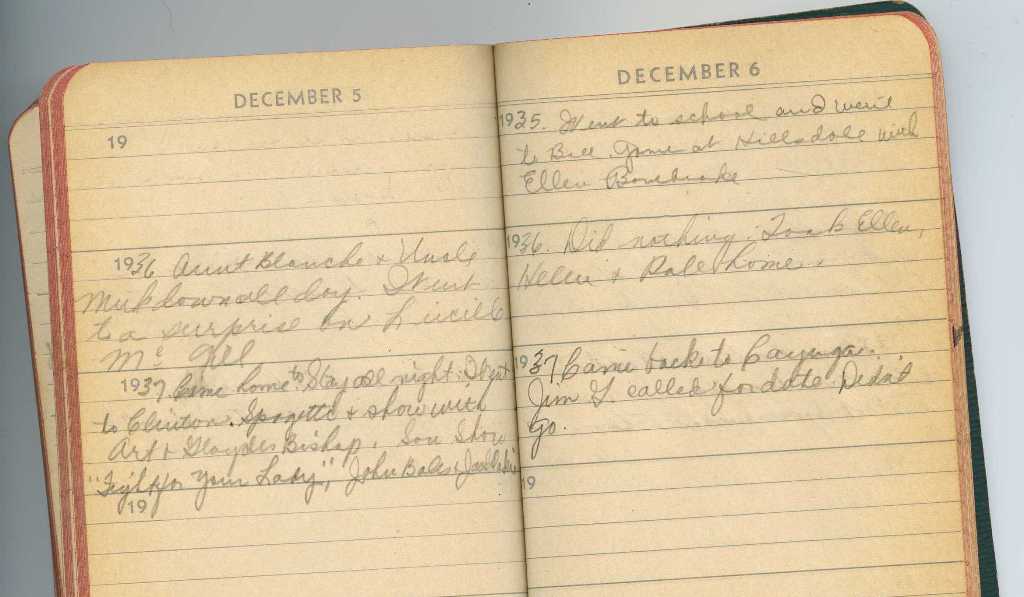 DECEMBER 5
19
1936 Aunt Blanche & Uncle
Muk down all day. Went
to a surprise on Lucille
Mc Gill
1937 Came home to Stay all night. Went
to Clinton. Spagetti & show with
Art & Gladyes Bishop. Saw Show
"Fight for Your Lady", John Boles & Jack
19
DECEMBER 6
1935. Went to school and went
to B.B. Game at Hillsdale with
Ellen Bonebrake
1936. Did nothing. Took Ellen,
Nellie & Dale home.
1937 Came back to Cayuga.
Jim T. called for date. Didn't
Go.
19